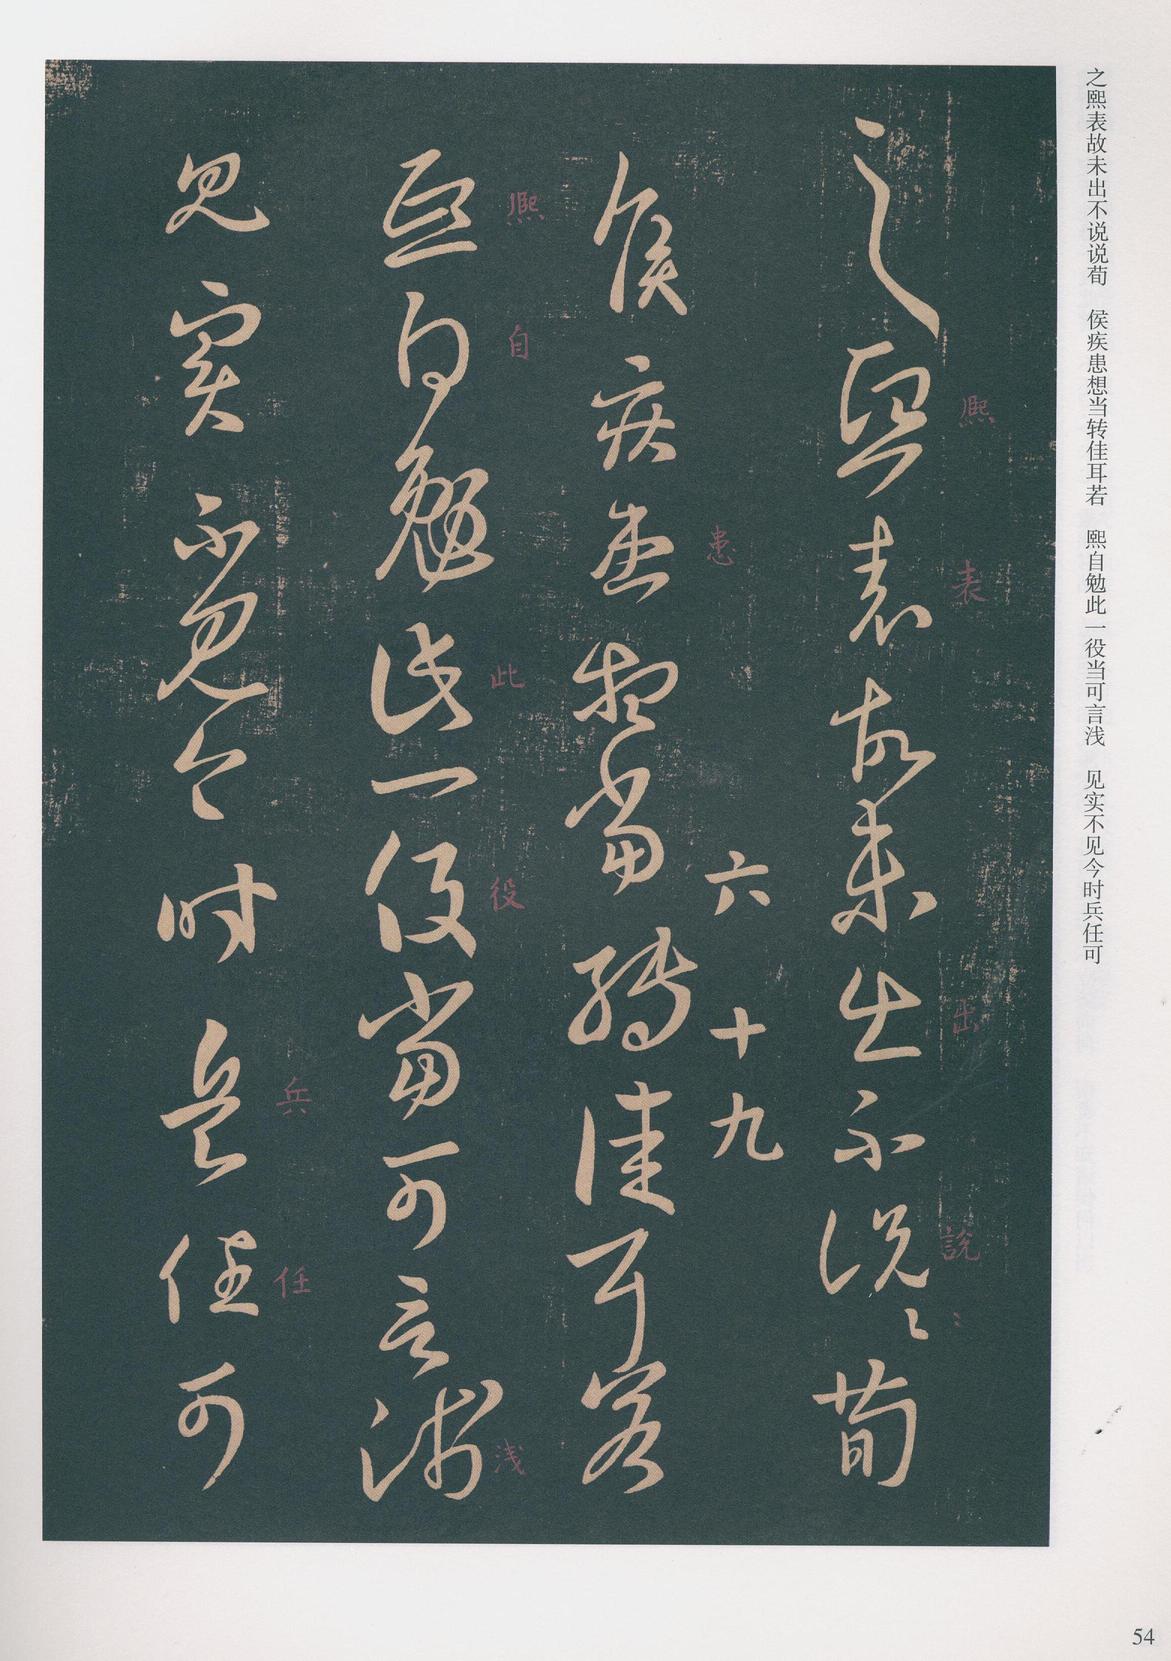 之熙表故未出不说说荀　侯疾患想当转佳耳若　熙自勉此一役当可言浅　见实不见今时兵任可
熙 表 出 說〻
之熙表故未出不說〻荀
患
六十九
侯疾患想當轉佳耳若
熙 自 此 役 浅
熙自勉此一役當可言淺
兵 任
見實不見今時兵任可
54